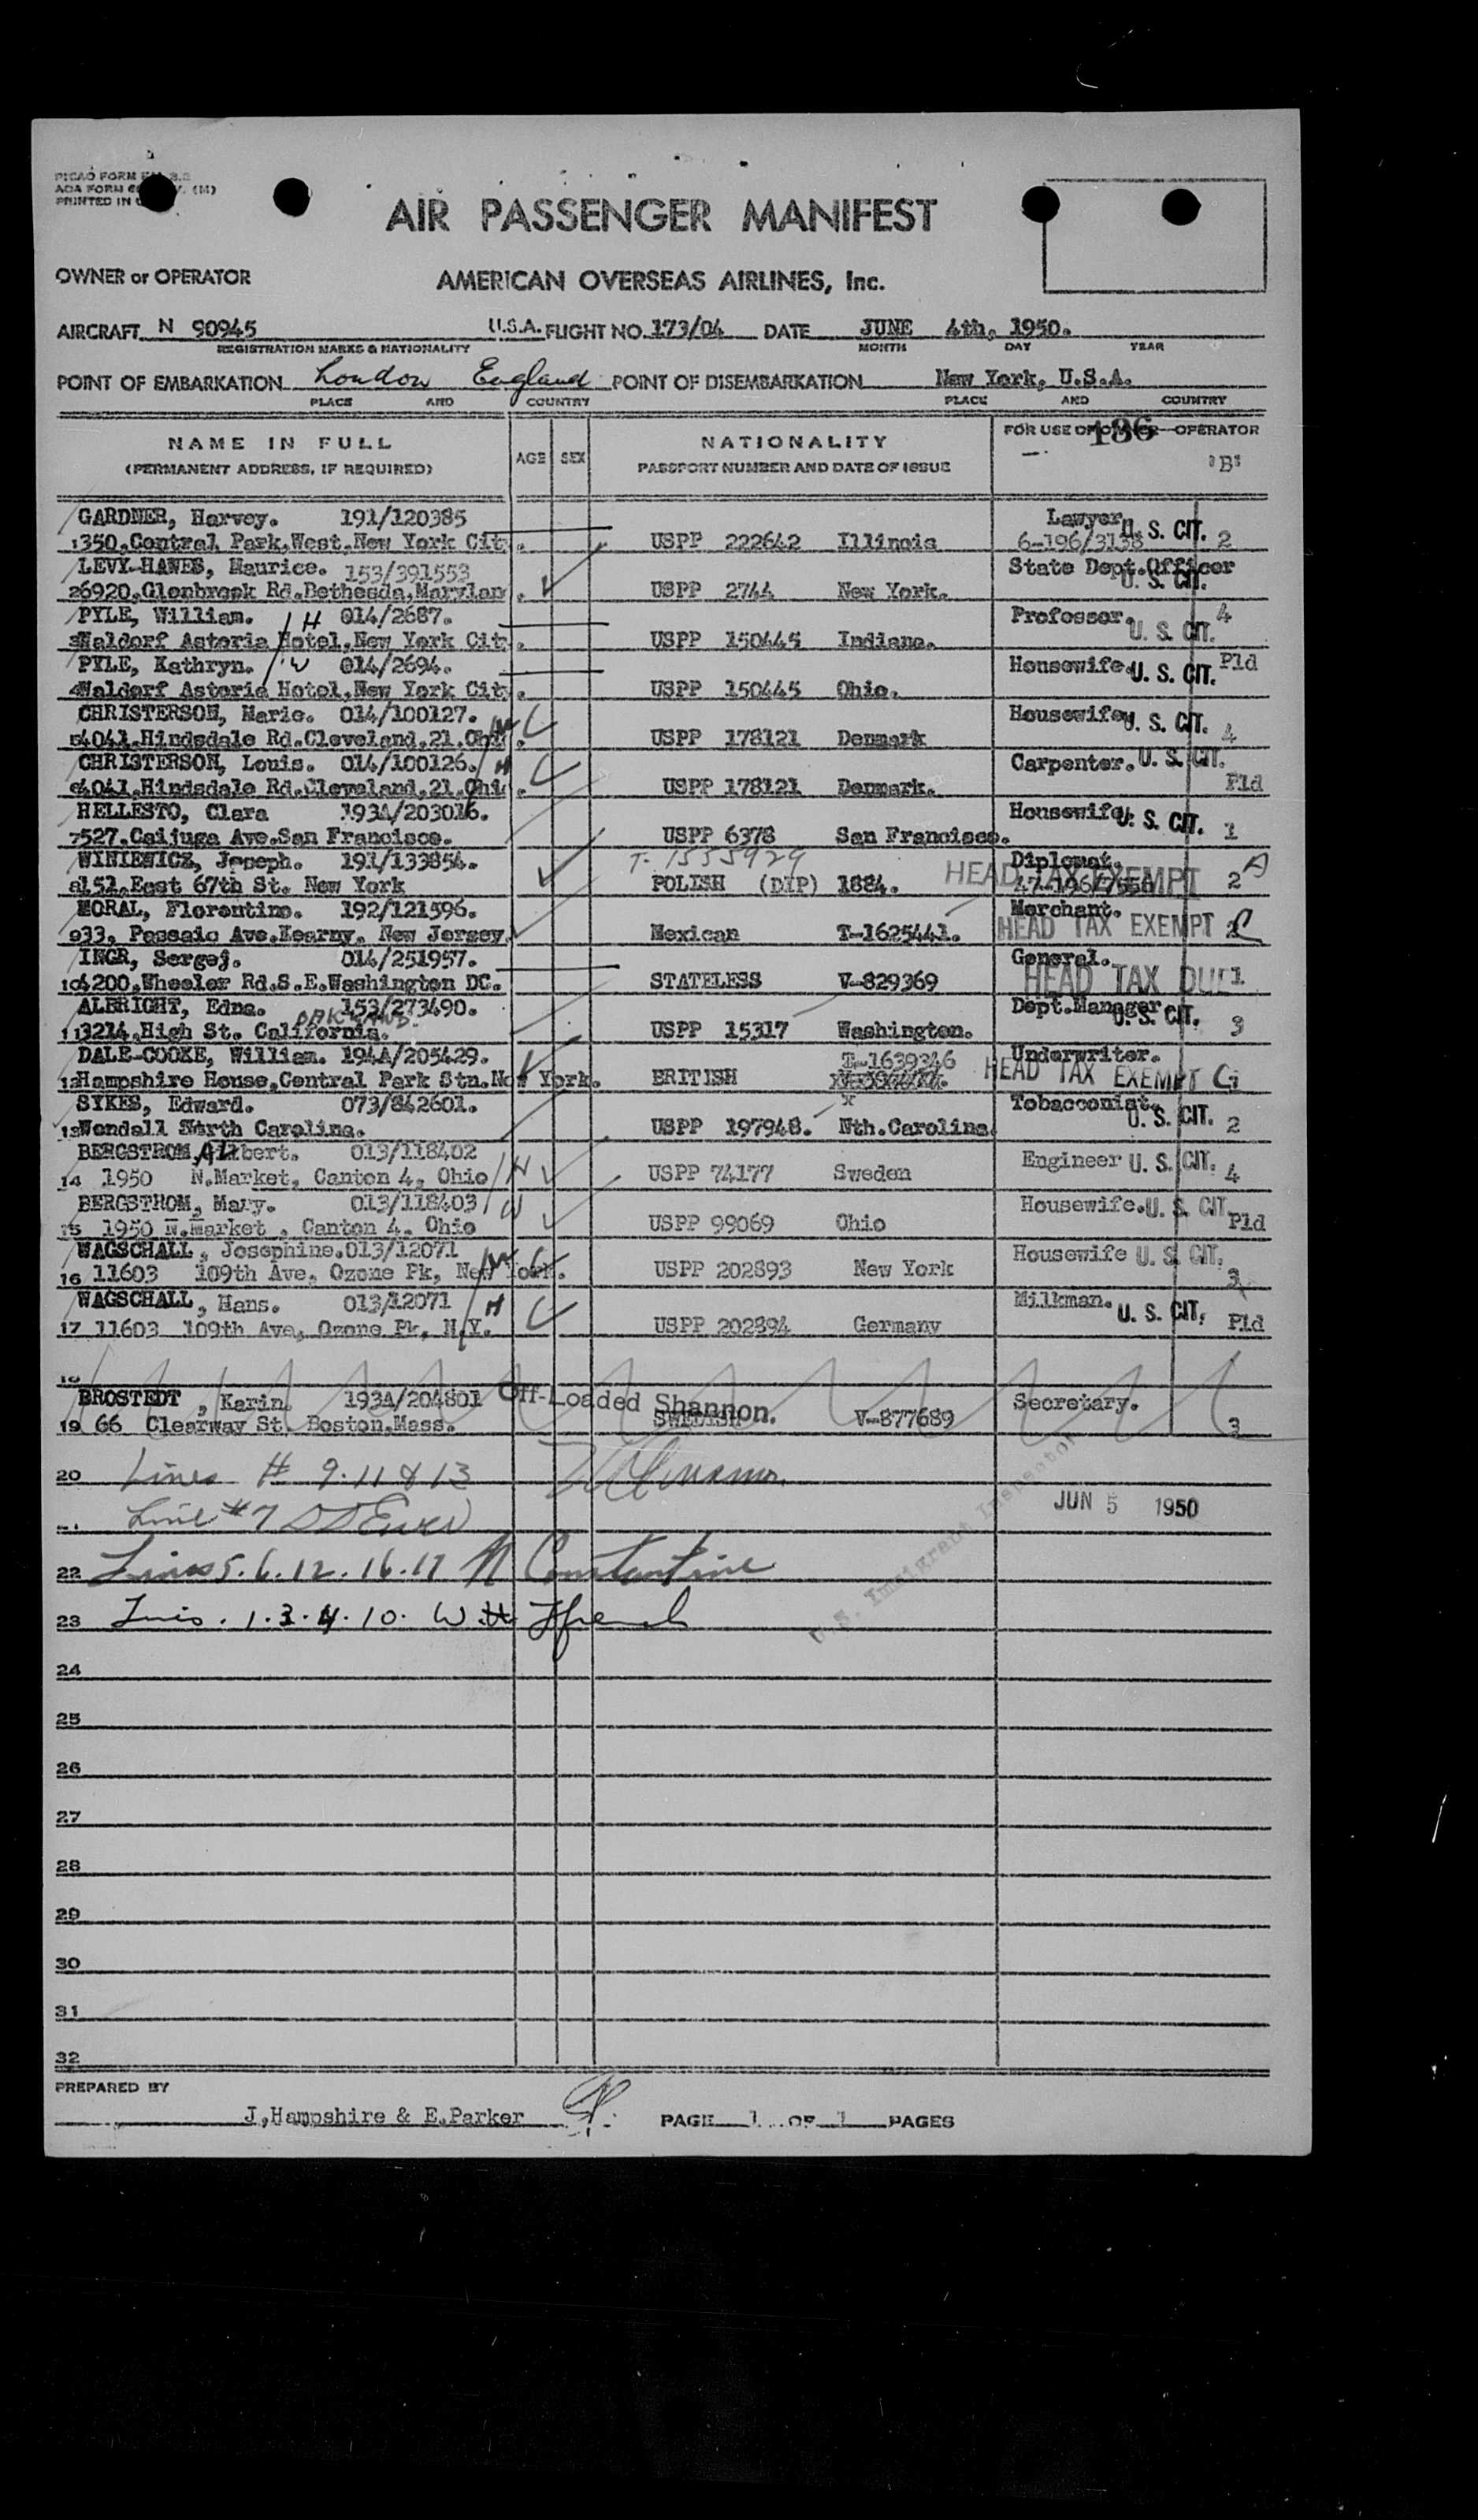 PICAO FORM
AOA FORM (M)
PRINTED IN
AIR PASSENGER MANIFEST
OWNER or OPERATOR AMERICAN OVERSEAS AIRLINES, Inc.
AIRCRAFT N 90945 U.S.A. FLIGHT NO. 173/04 DATE JUNE 4th, 1950.
REGISTRATION MARKS & NATIONALITY MONTH DAY YEAR
POINT OF EMBARKATION London England POINT OF DISEMBARKATION New York, U.S.A.
PLACE AND COUNTRY PLACE AND COUNTRY
NAME IN FULL AGE SEX NATIONALITY FOR USE OF OWNER OPERATOR
186
(PERMANENT ADDRESS, IF REQUIRED) PASSPORT NUMBER AND DATE OF ISSUE 'B'
GARDNER, Harvey. 191/120385 Lawyer.
1 350,Central Park,West,New York City. USPP 222642 Illinois 6-196/3138 U. S. CIT. 2
LEVY-HAWES, Maurice. 153/391553 State Dept.Officer
2 6920,Glenbrook Rd.Bethesda,Marylan. USPP 2744 New York. U. S. CIT.
PYLE, William. H 014/2687. Professor. 4
3 Waldorf Astoria Hotel,New York City. USPP 150445 Indiana. U. S. CIT.
PYLE, Kathryn. W 014/2694. Housewife. U. S. CIT. Pld
4 Waldorf Astoria Hotel,New York City. USPP 150445 Ohio.
CHRISTERSON, Marie. 014/100127. W C Housewife. U. S. CIT.
5 4041,Hindsdale Rd.Cleveland,21,Ohio. USPP 178121 Denmark 4
CHRISTERSON, Louis. 014/100126. H C Carpenter. U. S. CIT.
6 4041,Hindsdale Rd.Cleveland,21,Ohio. USPP 178121 Denmark. Pld
HELLESTO, Clara 193A/203016. Housewife. U. S. CIT.
7 527,Caijuga Ave.San Francisco. USPP 6378 San Francisco. 1
WINIEWICZ, Joseph. 191/133854. T-1555929 Diplomat. A
8 151,East 67th St. New York POLISH (DIP) 1884. HEAD TAX EXEMPT 2
MORAL, Florentino. 192/121596. Merchant.
9 33, Passaic Ave.Kearny, New Jersey. Mexican T-1625441. HEAD TAX EXEMPT C
INGR, Sergej. 014/251957. General.
10 4200,Wheeler Rd.S.E.Washington DC. STATELESS V-829369 HEAD TAX DUE 1
ALBRIGHT, Edna. 153/273490. Dept.Manager
OAKLAND.
11 3214,High St. California. USPP 15317 Washington. U. S. CIT. 3
DALE-COOKE, William. 194A/205429. T-1639346 Underwriter.
12 Hampshire House,Central Park Stn.New York. BRITISH HEAD TAX EXEMPT G
SYKES, Edward. 073/842601. Tobacconist.
13 Wendall North Carolina. USPP 197948. Nth.Carolina. U. S. CIT. 2
BERGSTROM, Albert. 013/118402 H Engineer U. S. CIT.
14 1950 N.Market, Canton 4, Ohio USPP 74177 Sweden 4
BERGSTROM, Mary. 013/118403 W Housewife. U. S. CIT.
15 1950 N.Market , Canton 4. Ohio USPP 99069 Ohio Pld
WAGSCHALL, Josephine.013/12071 W C Housewife U. S. CIT.
16 11603 109th Ave, Ozone Pk, New York. USPP 202893 New York 3
WAGSCHALL, Hans. 013/12071 H C Milkman. U. S. CIT.
17 11603 109th Ave, Ozone Pk, N.Y. USPP 202894 Germany Pld
18
BROSTEDT, Karin. 193A/204801 Off-Loaded Shannon. Secretary.
19 66 Clearway St. Boston.Mass. SWEDISH V-877689 3
20 Lines # 9.11 & 13
JUN 5 1950
Line #7
22 Lines 5.6.12.16.17 N Constantine
23 Lines. 1.3.4.10.
U.S. Immigrant Inspector
24
25
26
27
28
29
30
31
32
PREPARED BY
J,Hampshire & E.Parker PAGE 1 OF 1 PAGES